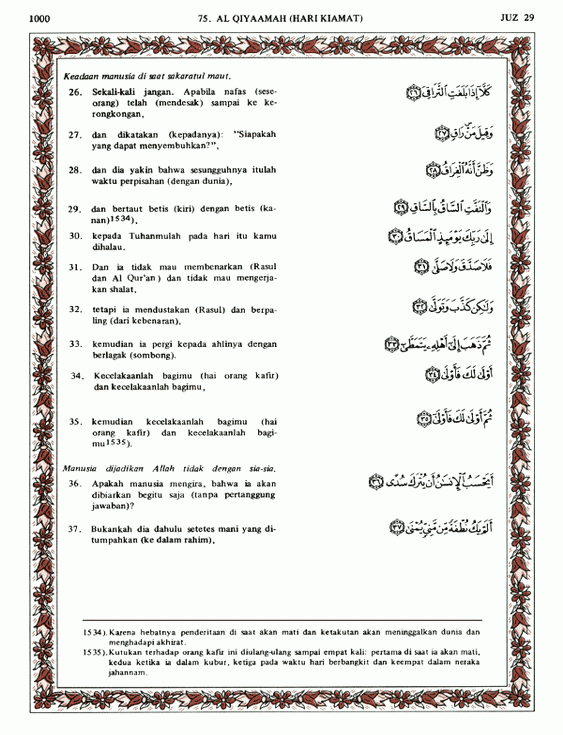 1000 75. AL QIYAAMAH (HARI KIAMAT) JUZ 29
Keadaan manusia di saat sakaratul maut.
26. Sekali-kali jangan. Apabila nafas (sese-
orang) telah (mendesak) sampai ke ke-
rongkongan,
كَلَّا إِذَا بَلَغَتِ التَّرَاقِيَ ﴿٢٦﴾
27. dan dikatakan (kepadanya): "Siapakah
yang dapat menyembuhkan?",
وَقِيلَ مَنْ رَاقٍ ﴿٢٧﴾
28. dan dia yakin bahwa sesungguhnya itulah
waktu perpisahan (dengan dunia),
وَظَنَّ أَنَّهُ الْفِرَاقُ ﴿٢٨﴾
29. dan bertaut betis (kiri) dengan betis (ka-
nan)1534),
وَالْتَفَّتِ السَّاقُ بِالسَّاقِ ﴿٢٩﴾
30. kepada Tuhanmulah pada hari itu kamu
dihalau.
إِلَى رَبِّكَ يَوْمَئِذٍ الْمَسَاقُ ﴿٣٠﴾
31. Dan ia tidak mau membenarkan (Rasul
dan Al Qur'an) dan tidak mau mengerja-
kan shalat,
فَلَا صَدَّقَ وَلَا صَلَّى ﴿٣١﴾
32. tetapi ia mendustakan (Rasul) dan berpa-
ling (dari kebenaran),
وَلَكِنْ كَذَّبَ وَتَوَلَّى ﴿٣٢﴾
33. kemudian ia pergi kepada ahlinya dengan
berlagak (sombong).
ثُمَّ ذَهَبَ إِلَى أَهْلِهِ يَتَمَطَّى ﴿٣٣﴾
34. Kecelakaanlah bagimu (hai orang kafir)
dan kecelakaanlah bagimu,
أَوْلَى لَكَ فَأَوْلَى ﴿٣٤﴾
35. kemudian kecelakaanlah bagimu (hai
orang kafir) dan kecelakaanlah bagi-
mu1535).
ثُمَّ أَوْلَى لَكَ فَأَوْلَى ﴿٣٥﴾
Manusia dijadikan Allah tidak dengan sia-sia.
36. Apakah manusia mengira, bahwa ia akan
dibiarkan begitu saja (tanpa pertanggung
jawaban)?
أَيَحْسَبُ الْإِنْسَانُ أَنْ يُتْرَكَ سُدًى ﴿٣٦﴾
37. Bukankah dia dahulu setetes mani yang di-
tumpahkan (ke dalam rahim),
أَلَمْ يَكُ نُطْفَةً مِنْ مَنِيٍّ يُمْنَى ﴿٣٧﴾
1534). Karena hebatnya penderitaan di saat akan mati dan ketakutan akan meninggalkan dunia dan
menghadapi akhirat.
1535). Kutukan terhadap orang kafir ini diulang-ulang sampai empat kali: pertama di saat ia akan mati,
kedua ketika ia dalam kubur, ketiga pada waktu hari berbangkit dan keempat dalam neraka
jahannam.